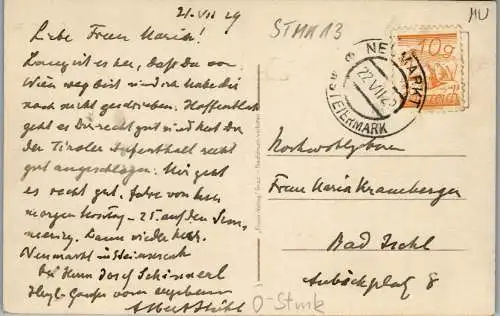 21. VII 29
STMK 13
MU
Liebe Frau Maria!
Lang ist es her, daß Du von
Wien weg bist und ich habe dir
noch nicht geschrieben. Hoffentlich
geht es Dir recht gut und hat Dir
der Tiroler Aufenthalt recht
gut angeschlagen. Mir geht
es recht gut. Fahre von hier
morgen Montag - 25. auf den Sem-
mering. Dann wieder hier.
Neumarkt in Steiermark
bei Herrn Josef
NEUMARKT
22.VII.29
STEIERMARK
10g
Hochwohlgeboren
Frau Maria Kramberger
Bad Ischl
Auböckplatz 8
O-Stmk